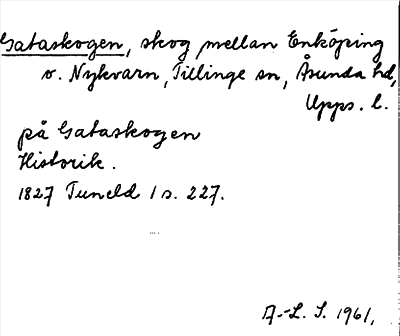 Gataskogen, skog mellan Enköping
o. Nykvarn, Tillinge sn, Åsunda hd,
Upps. l.
på Gataskogen
Historik.
1827 Tuneld 1 s. 227.
A.-L. S. 1961,